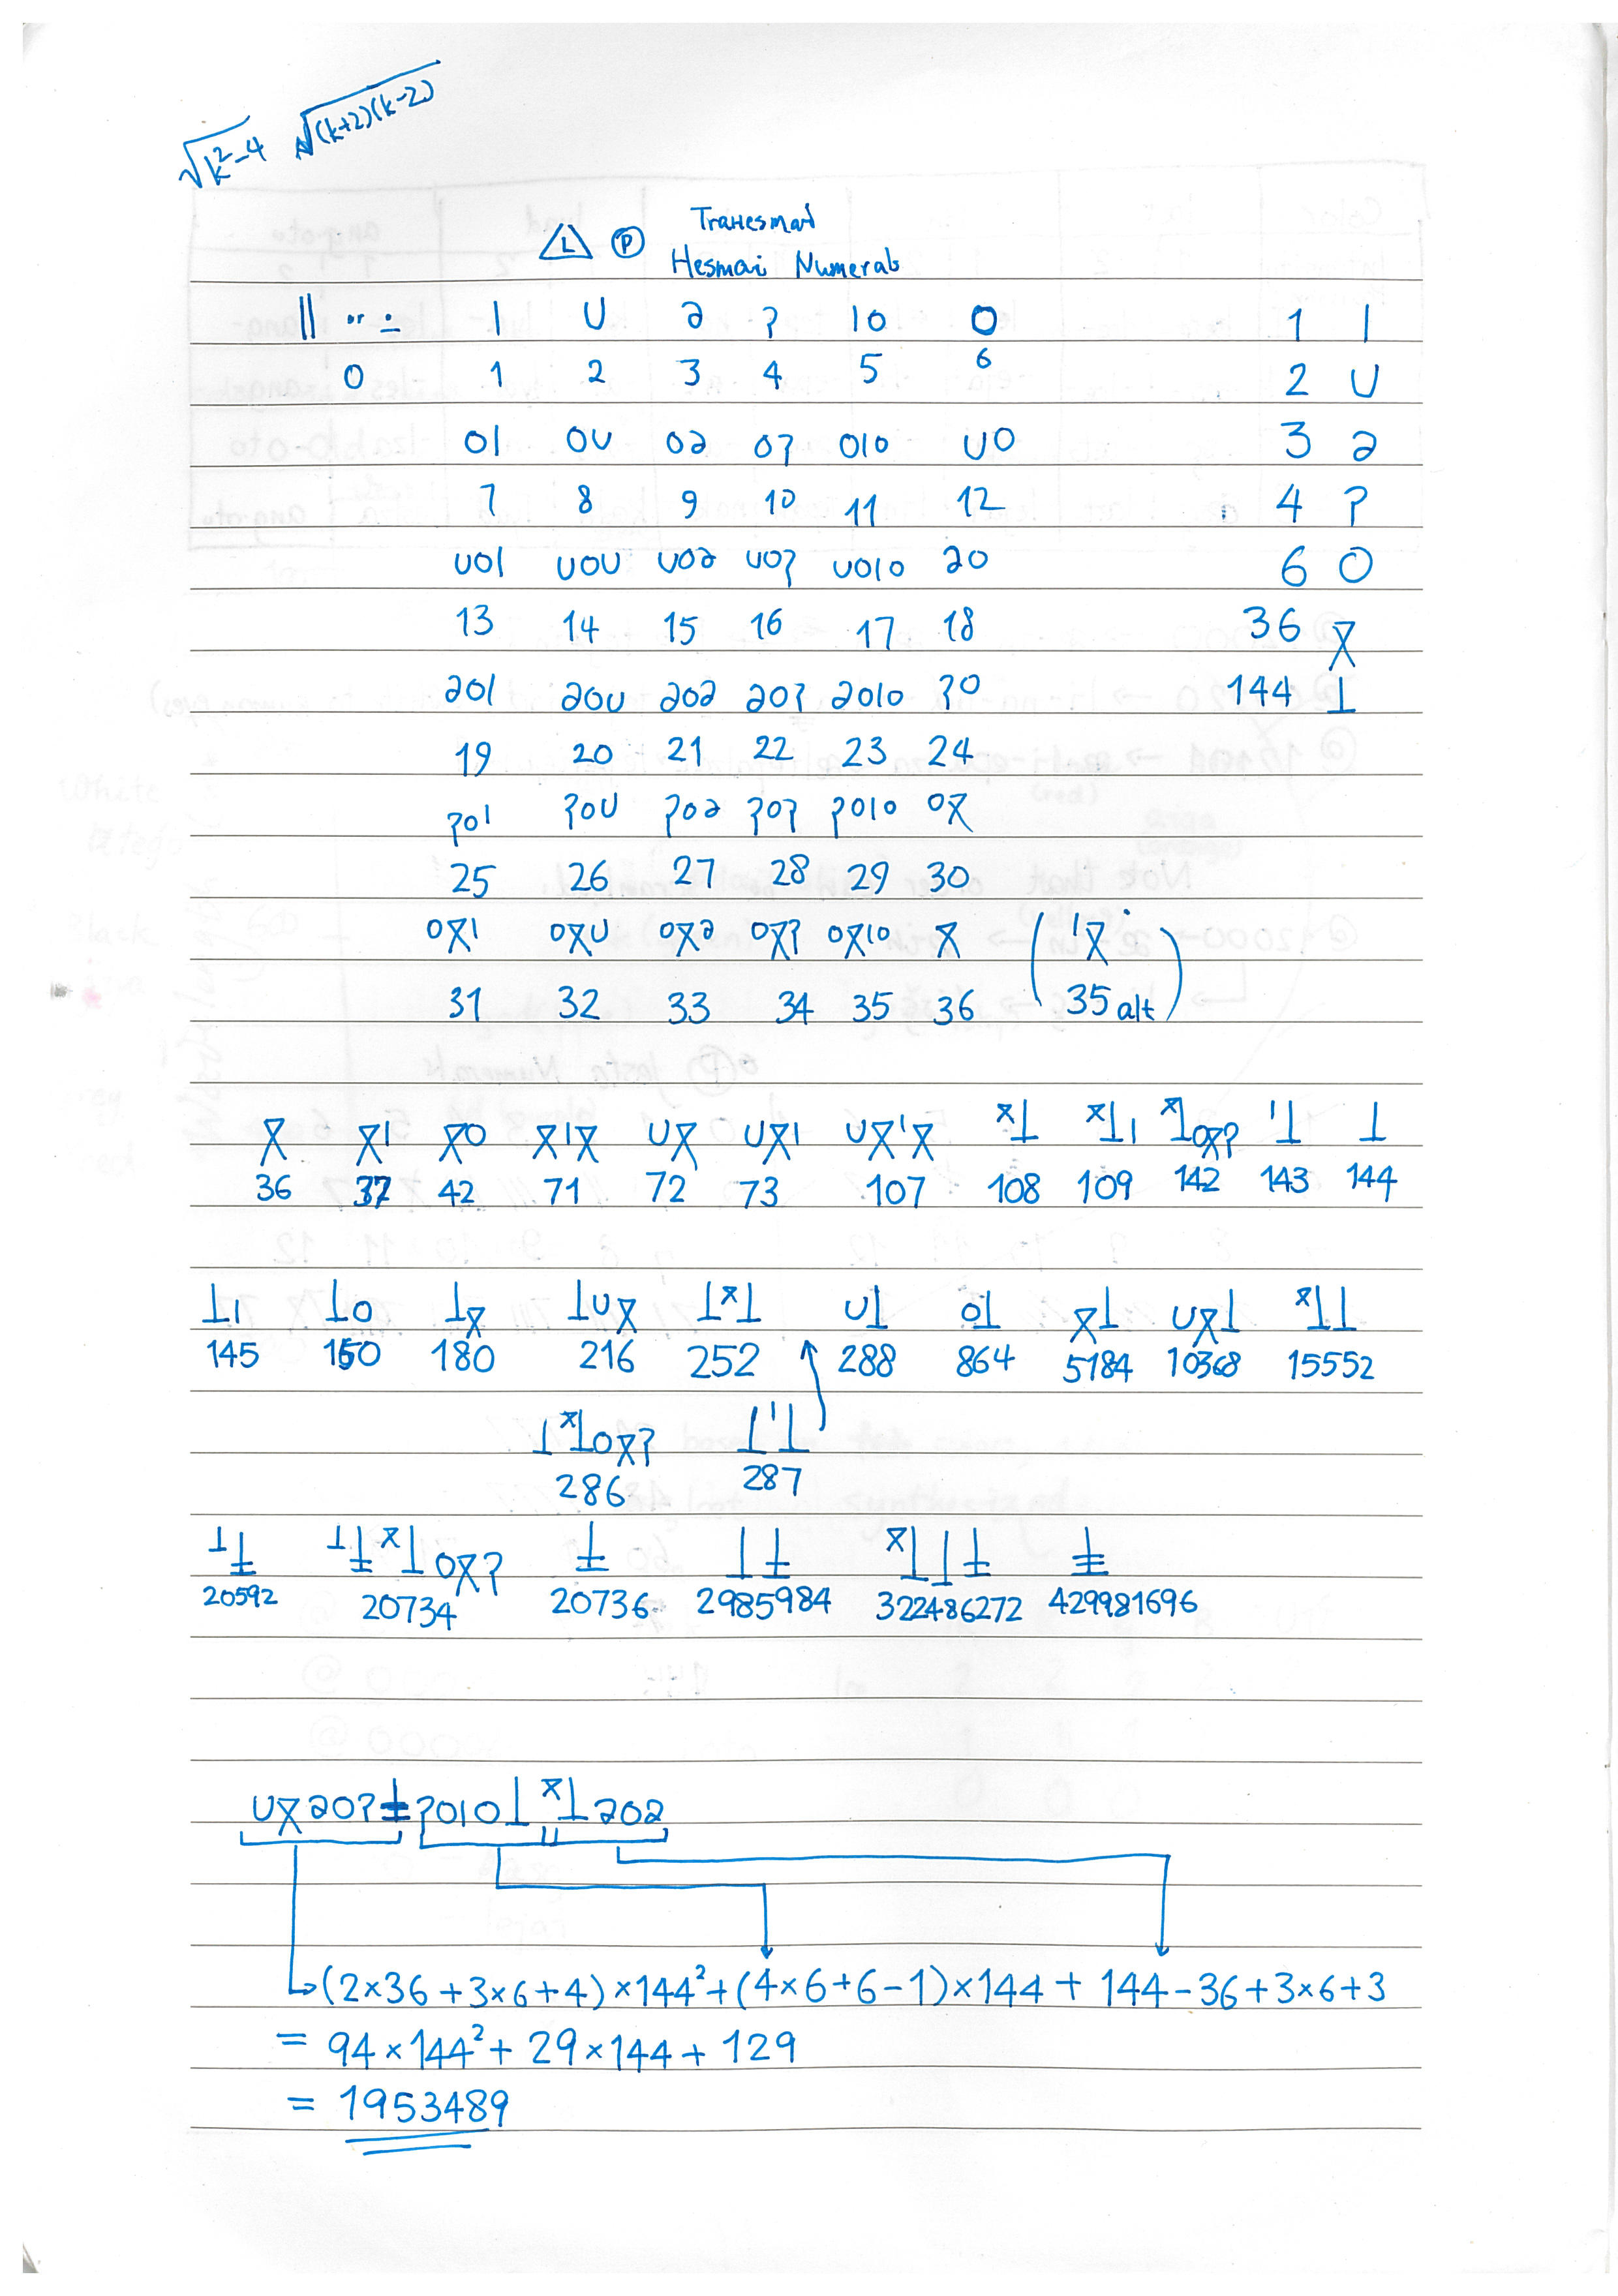 √k²-4 √(k+2)(k-2)
L P Tranesman
Hesmai Numerals
|| ·· or ∸ | U a ? 10 O 1 |
0 1 2 3 4 5 6 2 U
01 0U 0a 0? 010 U0 3 a
7 8 9 10 11 12 4 ?
U01 U0U U0a U0? U010 a0 6 O
13 14 15 16 17 18 36 X̄
a01 a0U a0a a0? a010 ?0 144 ⊥
19 20 21 22 23 24
?01 ?0U ?0a ?0? ?010 0X̄
25 26 27 28 29 30
0X̄1 0X̄U 0X̄a 0X̄? 0X̄10 X̄ ('X̄
31 32 33 34 35 36 35 alt)
X̄ X̄1 X̄0 X̄'X̄ UX̄ UX̄1 UX̄'X̄ X̄⊥ X̄⊥1 X̄⊥0X̄? '⊥ ⊥
36 37 42 71 72 73 107 108 109 142 143 144
⊥1 ⊥0 ⊥X̄ ⊥UX̄ ⊥X̄⊥ U⊥ 0⊥ X̄⊥ UX̄⊥ X̄⊥⊥
145 150 180 216 252 288 864 5184 10368 15552
⊥X̄⊥0X̄? ⊥'⊥
286 287
⊥⊥̵ ⊥⊥̵X̄⊥0X̄? ⊥̵ ⊥⊥̵ X̄⊥⊥⊥̵ ⊥̳
20592 20734 20736 2985984 322486272 429981696
UX̄a0?⊥̵?010⊥X̄⊥a0a
(2×36+3×6+4)×144²+(4×6+6-1)×144+144-36+3×6+3
= 94×144²+29×144+129
= 1953489